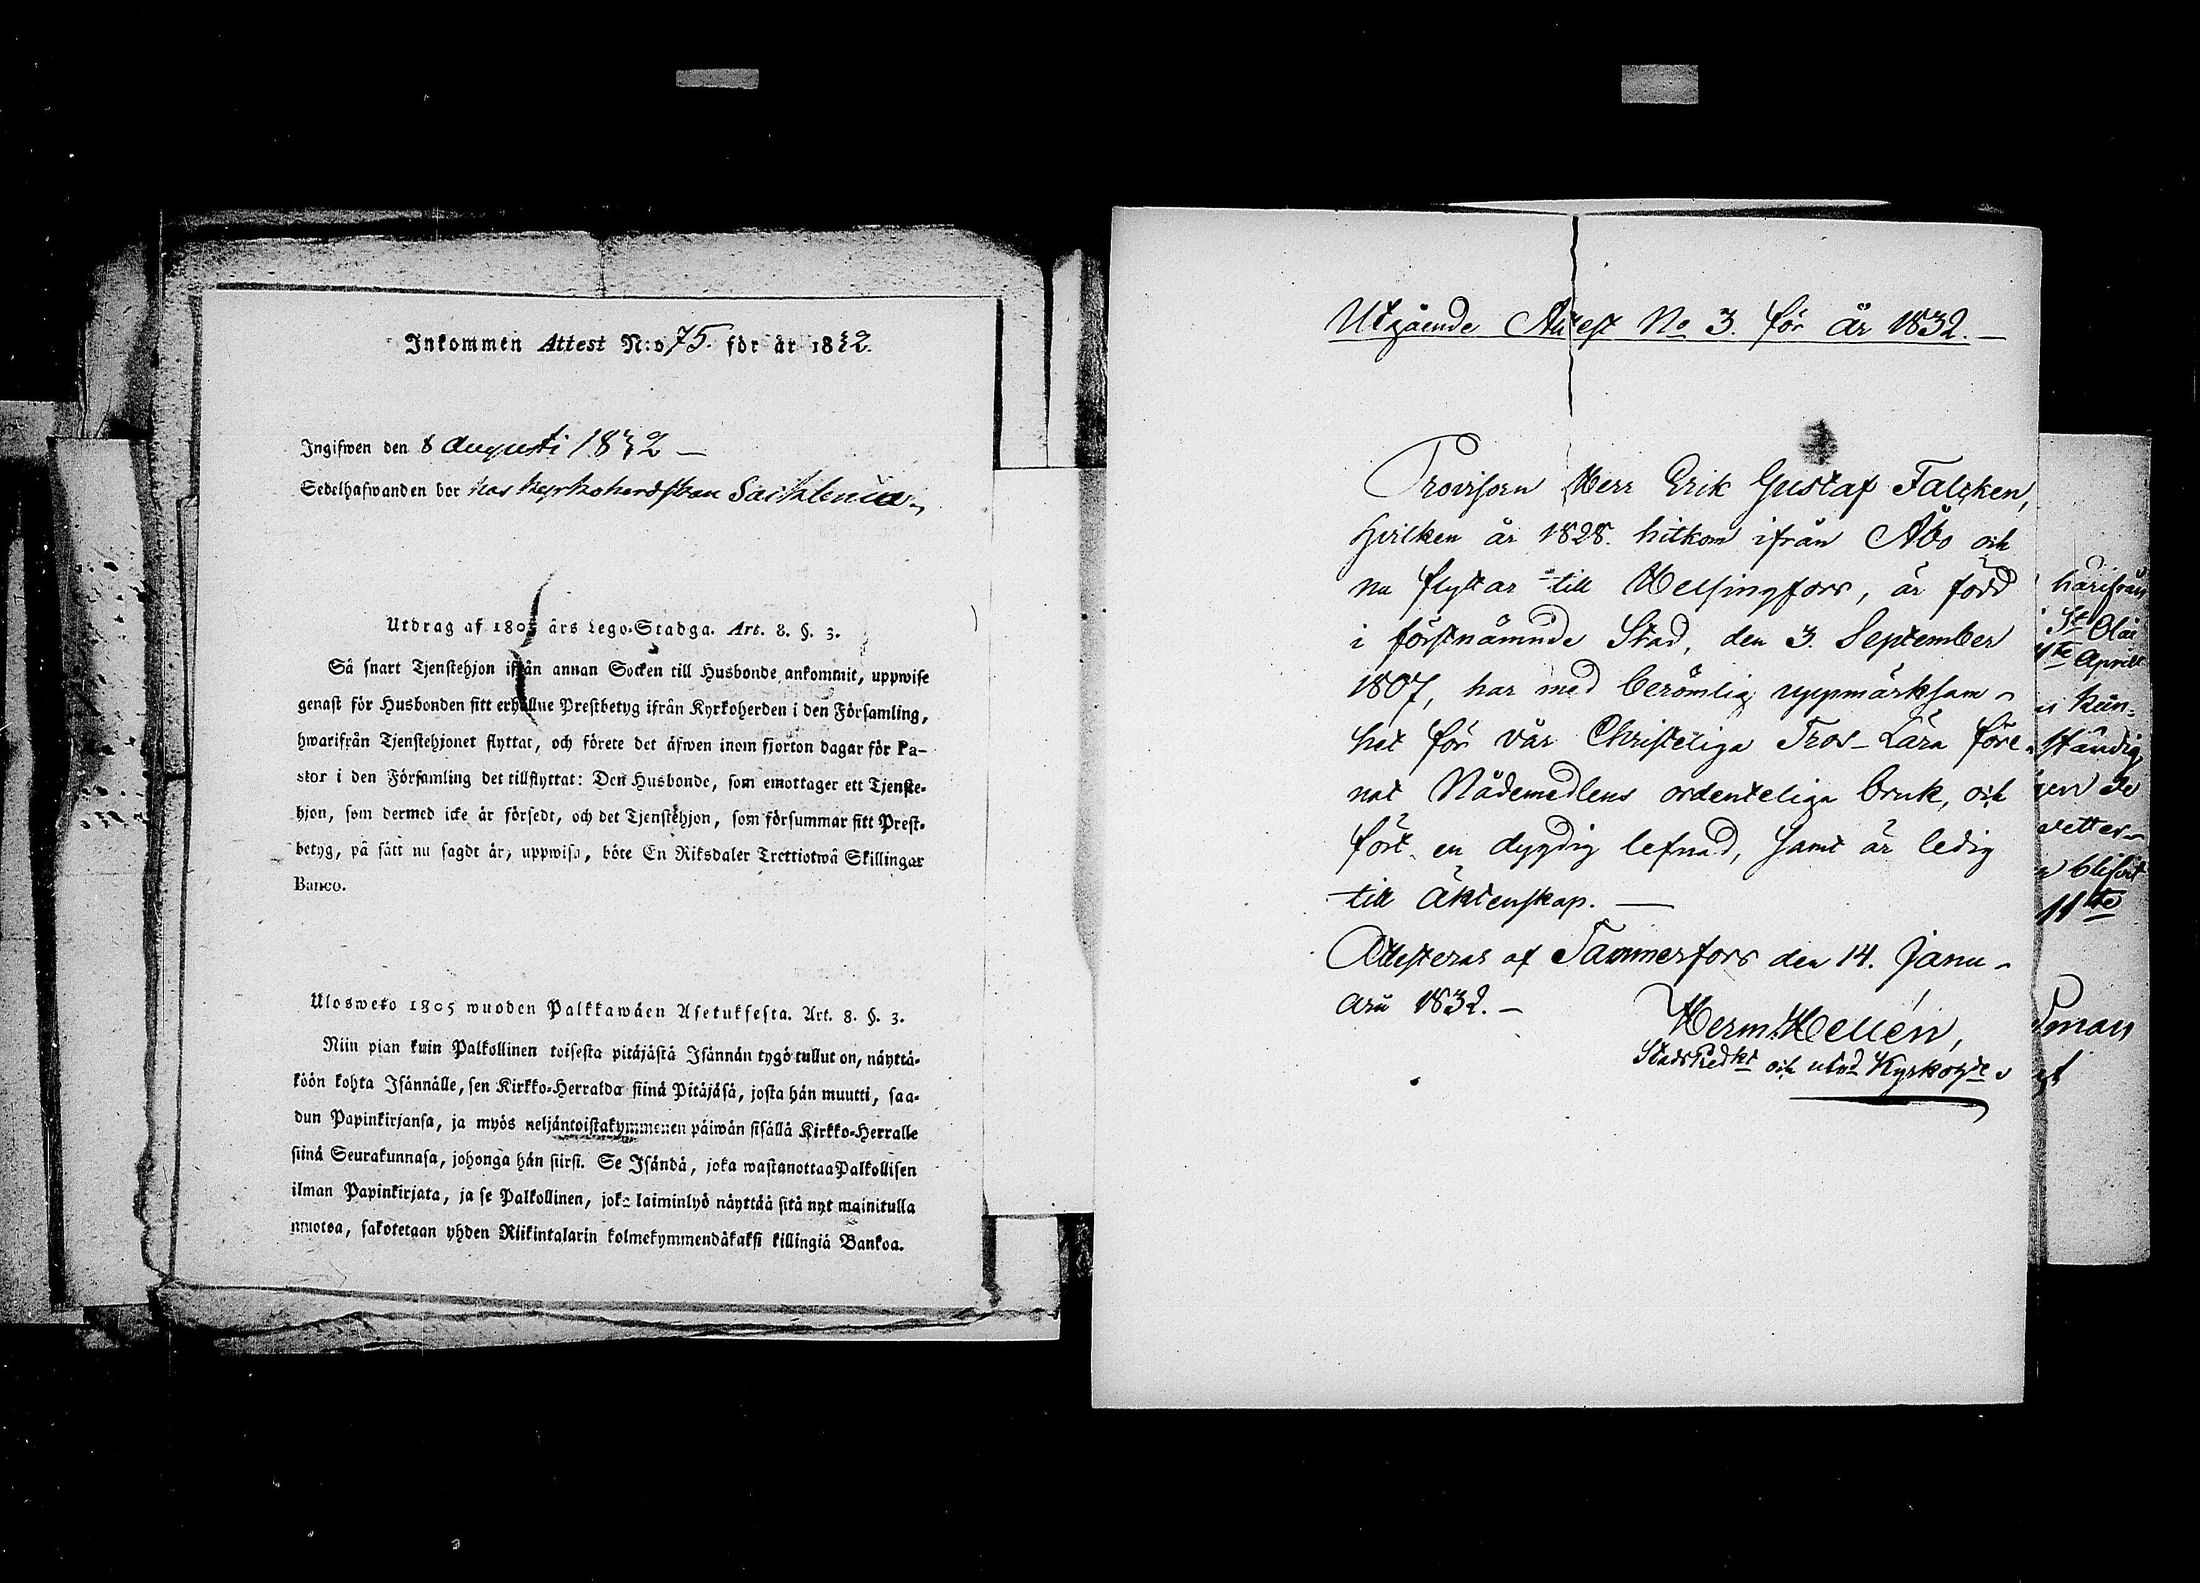 Inkommen Attest N:o 75. för år 1832.
Ingifwen den 8 Augusti 1832 –
Sedelhafwanden bor hos Kyrkoherdskan
Utdrag af 1805 års Lego-Stadga. Art. 8. §. 3.
Så snart Tjenstehjon ifrån annan Socken till Husbonde ankommit, uppwise
genast för Husbonden sitt erhållne Prestbetyg ifrån Kyrkoherden i den Församling,
hwarifrån Tjenstehjonet flyttat, och förete det äfwen inom fjorton dagar för Pa-
stor i den Församling det tillflyttat: Den Husbonde, som emottager ett Tjenste-
hjon, som dermed icke är försedt, och det Tjenstehjon, som försummar sitt Prest-
betyg, på sätt nu sagdt är, uppwisa, böte En Riksdaler Trettiotwå Skillingar
Banco.
Ulosweto 1805 wuoden Palkkawäen Asetuksesta. Art. 8. §. 3.
Niin pian kuin Palkollinen toisesta pitäjästä Isännän tygö tullut on, näyttä-
köön kohta Isännälle, sen Kirkko-Herralda siinä Pitäjäsä, josta hän muutti, saa-
dun Papinkirjansa, ja myös neljäntoistakymmenen päiwän sisällä Kirkko-Herralle
siinä Seurakunnasa, johonga hän siirsi. Se Isändä, joka wastanottaa Palkollisen
ilman Papinkirjata, ja se Palkollinen, joka laiminlyö näyttää sitä nyt mainitulla
muotoa, sakotetaan yhden Riikintalarin kolmekymmendäkaksi killingiä Bankoa.
Utgående Attest No 3. för år 1832. –
Provisorn Herr Erik Gustaf Falcken,
hvilken år 1828. hitkom ifrån Åbo och
nu flyttar till Helsingfors, är född
i förstnämnde Stad, den 3. September
1807, har med berömlig uppmärksam-
het för vår Christeliga Tros-Lära före-
nat Nådemedlens ordenteliga bruk, och
fört en dygdig lefnad, samt är ledig
till Äktenskap. —
Attesteras af Tammerfors den 14. Janu-
arii 1832. –
Herm. Hellén,
StadsPredkt och utnd Kyrkohde
härifrån
St Olai
Aprill
kun-
ständig
blifvit
11te